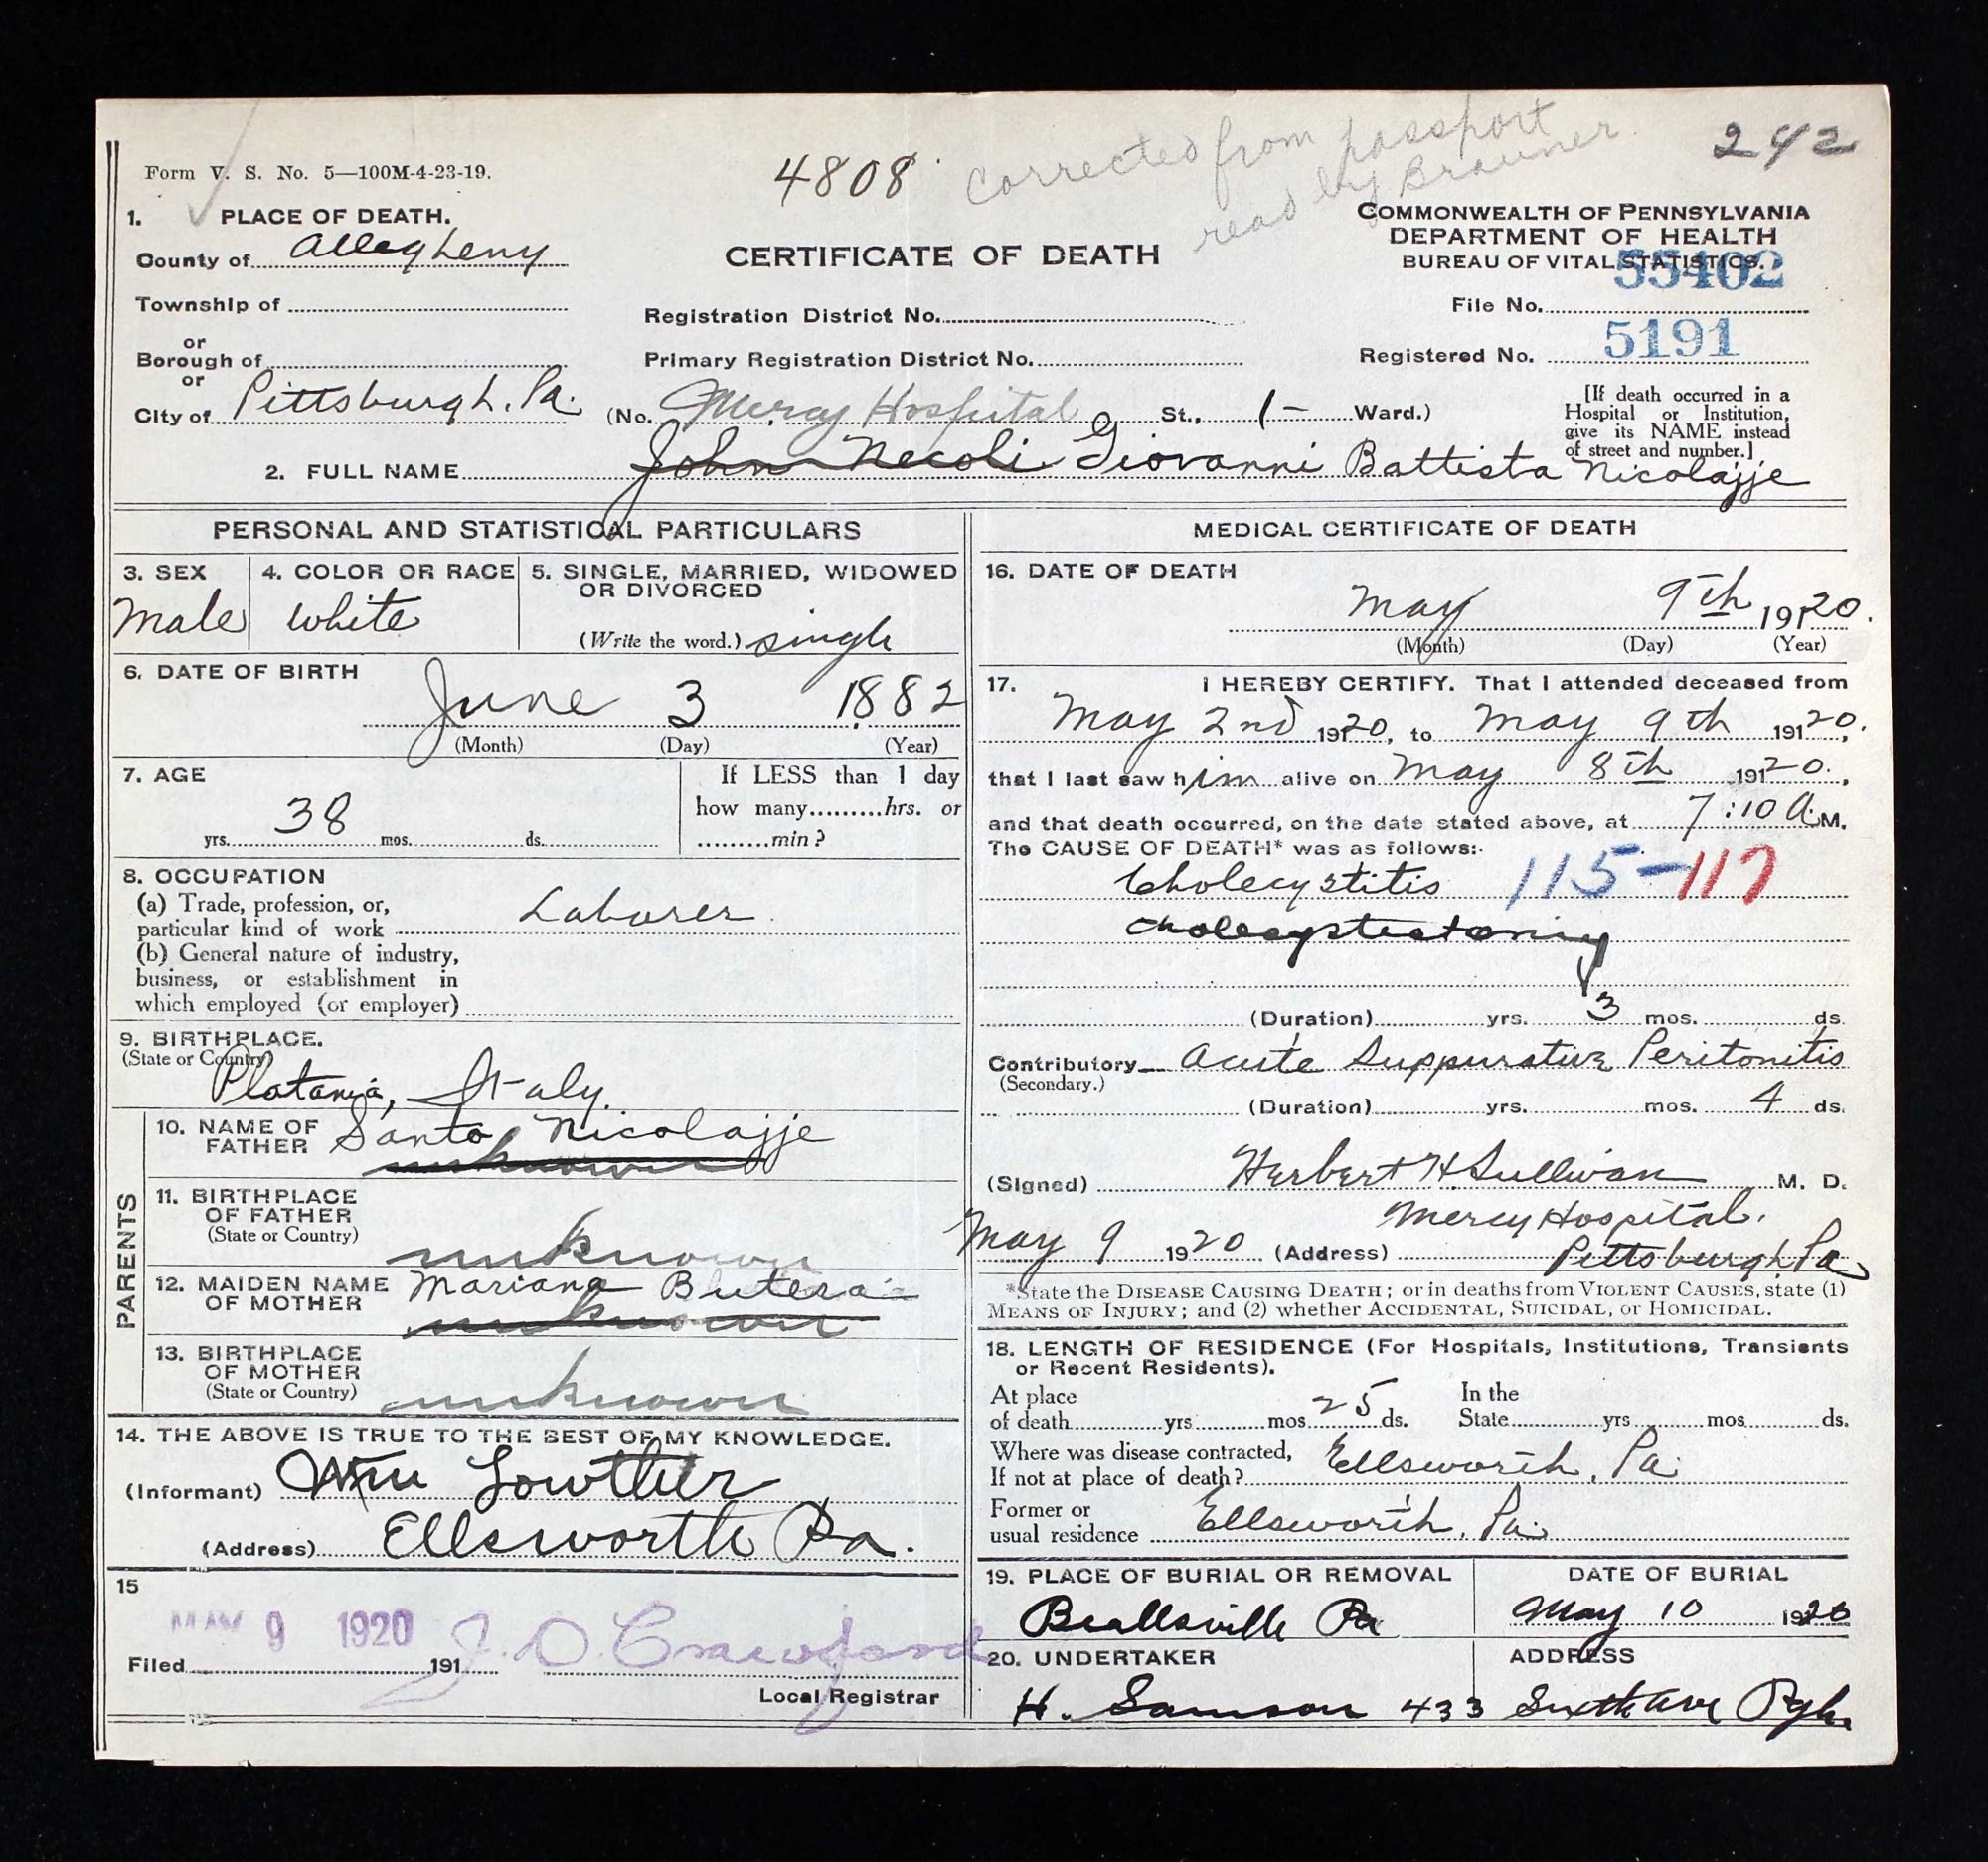 4808
Corrected from passport
read by Brawner
242
Form V. S. No. 5—100M-4-23-19.
1. PLACE OF DEATH.
County of Allegheny
Township of
or
Borough of
or
City of Pittsburgh, Pa.
CERTIFICATE OF DEATH
Registration District No.
Primary Registration District No.
(No. Mercy Hospital St., 1- Ward.)
COMMONWEALTH OF PENNSYLVANIA
DEPARTMENT OF HEALTH
BUREAU OF VITAL STATISTICS.
55402
File No.
Registered No. 5191
[If death occurred in a
Hospital or Institution,
give its NAME instead
of street and number.]
2. FULL NAME John Necoli Giovanni Battista Nicolajje
PERSONAL AND STATISTICAL PARTICULARS
3. SEX
Male
4. COLOR OR RACE
white
5. SINGLE, MARRIED, WIDOWED
OR DIVORCED
(Write the word.) single
6. DATE OF BIRTH
June 3 1882
(Month) (Day) (Year)
7. AGE
38
yrs. mos. ds.
If LESS than 1 day
how many hrs. or
min?
8. OCCUPATION
(a) Trade, profession, or,
particular kind of work Laborer
(b) General nature of industry,
business, or establishment in
which employed (or employer)
9. BIRTHPLACE.
(State or Country)
Platania, Italy.
PARENTS
10. NAME OF
FATHER Santo Nicolajje
unknown
11. BIRTHPLACE
OF FATHER
(State or Country)
unknown
12. MAIDEN NAME
OF MOTHER Mariana Butera
unknown
13. BIRTHPLACE
OF MOTHER
(State or Country) unknown
14. THE ABOVE IS TRUE TO THE BEST OF MY KNOWLEDGE.
(Informant) Wm Lowther
(Address) Ellsworth Pa.
15
MAY 9 1920 J. D. Crawford
Filed 191
Local Registrar
MEDICAL CERTIFICATE OF DEATH
16. DATE OF DEATH
May 9th 1920.
(Month) (Day) (Year)
17. I HEREBY CERTIFY. That I attended deceased from
May 2nd 1920, to May 9th 1920,
that I last saw him alive on May 8th 1920,
and that death occurred, on the date stated above, at 7:10 A.M.
The CAUSE OF DEATH* was as follows:
Cholecystitis 115-117
cholecystectomy
(Duration) yrs. 3 mos. ds.
Contributory Acute Suppurative Peritonitis
(Secondary.)
(Duration) yrs. mos. 4 ds.
(Signed) Herbert H. Sullivan M. D.
Mercy Hospital.
May 9 1920 (Address) Pittsburgh Pa
*State the DISEASE CAUSING DEATH; or in deaths from VIOLENT CAUSES, state (1)
MEANS OF INJURY; and (2) whether ACCIDENTAL, SUICIDAL, or HOMICIDAL.
18. LENGTH OF RESIDENCE (For Hospitals, Institutions, Transients
or Recent Residents).
At place
of death yrs mos 25 ds.
In the
State yrs mos ds.
Where was disease contracted,
If not at place of death? Ellsworth, Pa.
Former or
usual residence Ellsworth, Pa.
19. PLACE OF BURIAL OR REMOVAL
Beallsville Pa
DATE OF BURIAL
May 10 1920
20. UNDERTAKER
H. Samson
ADDRESS
433 Sixth Ave Pgh.